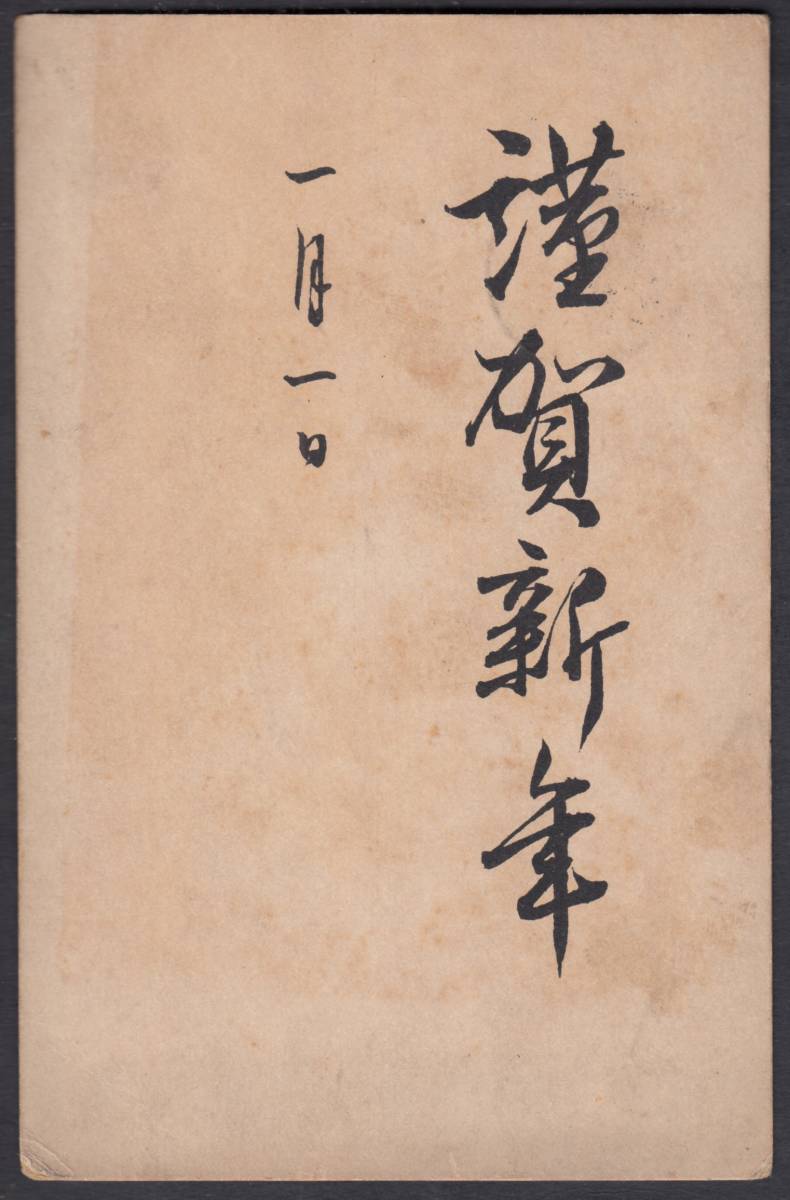 謹賀新年
一月一日